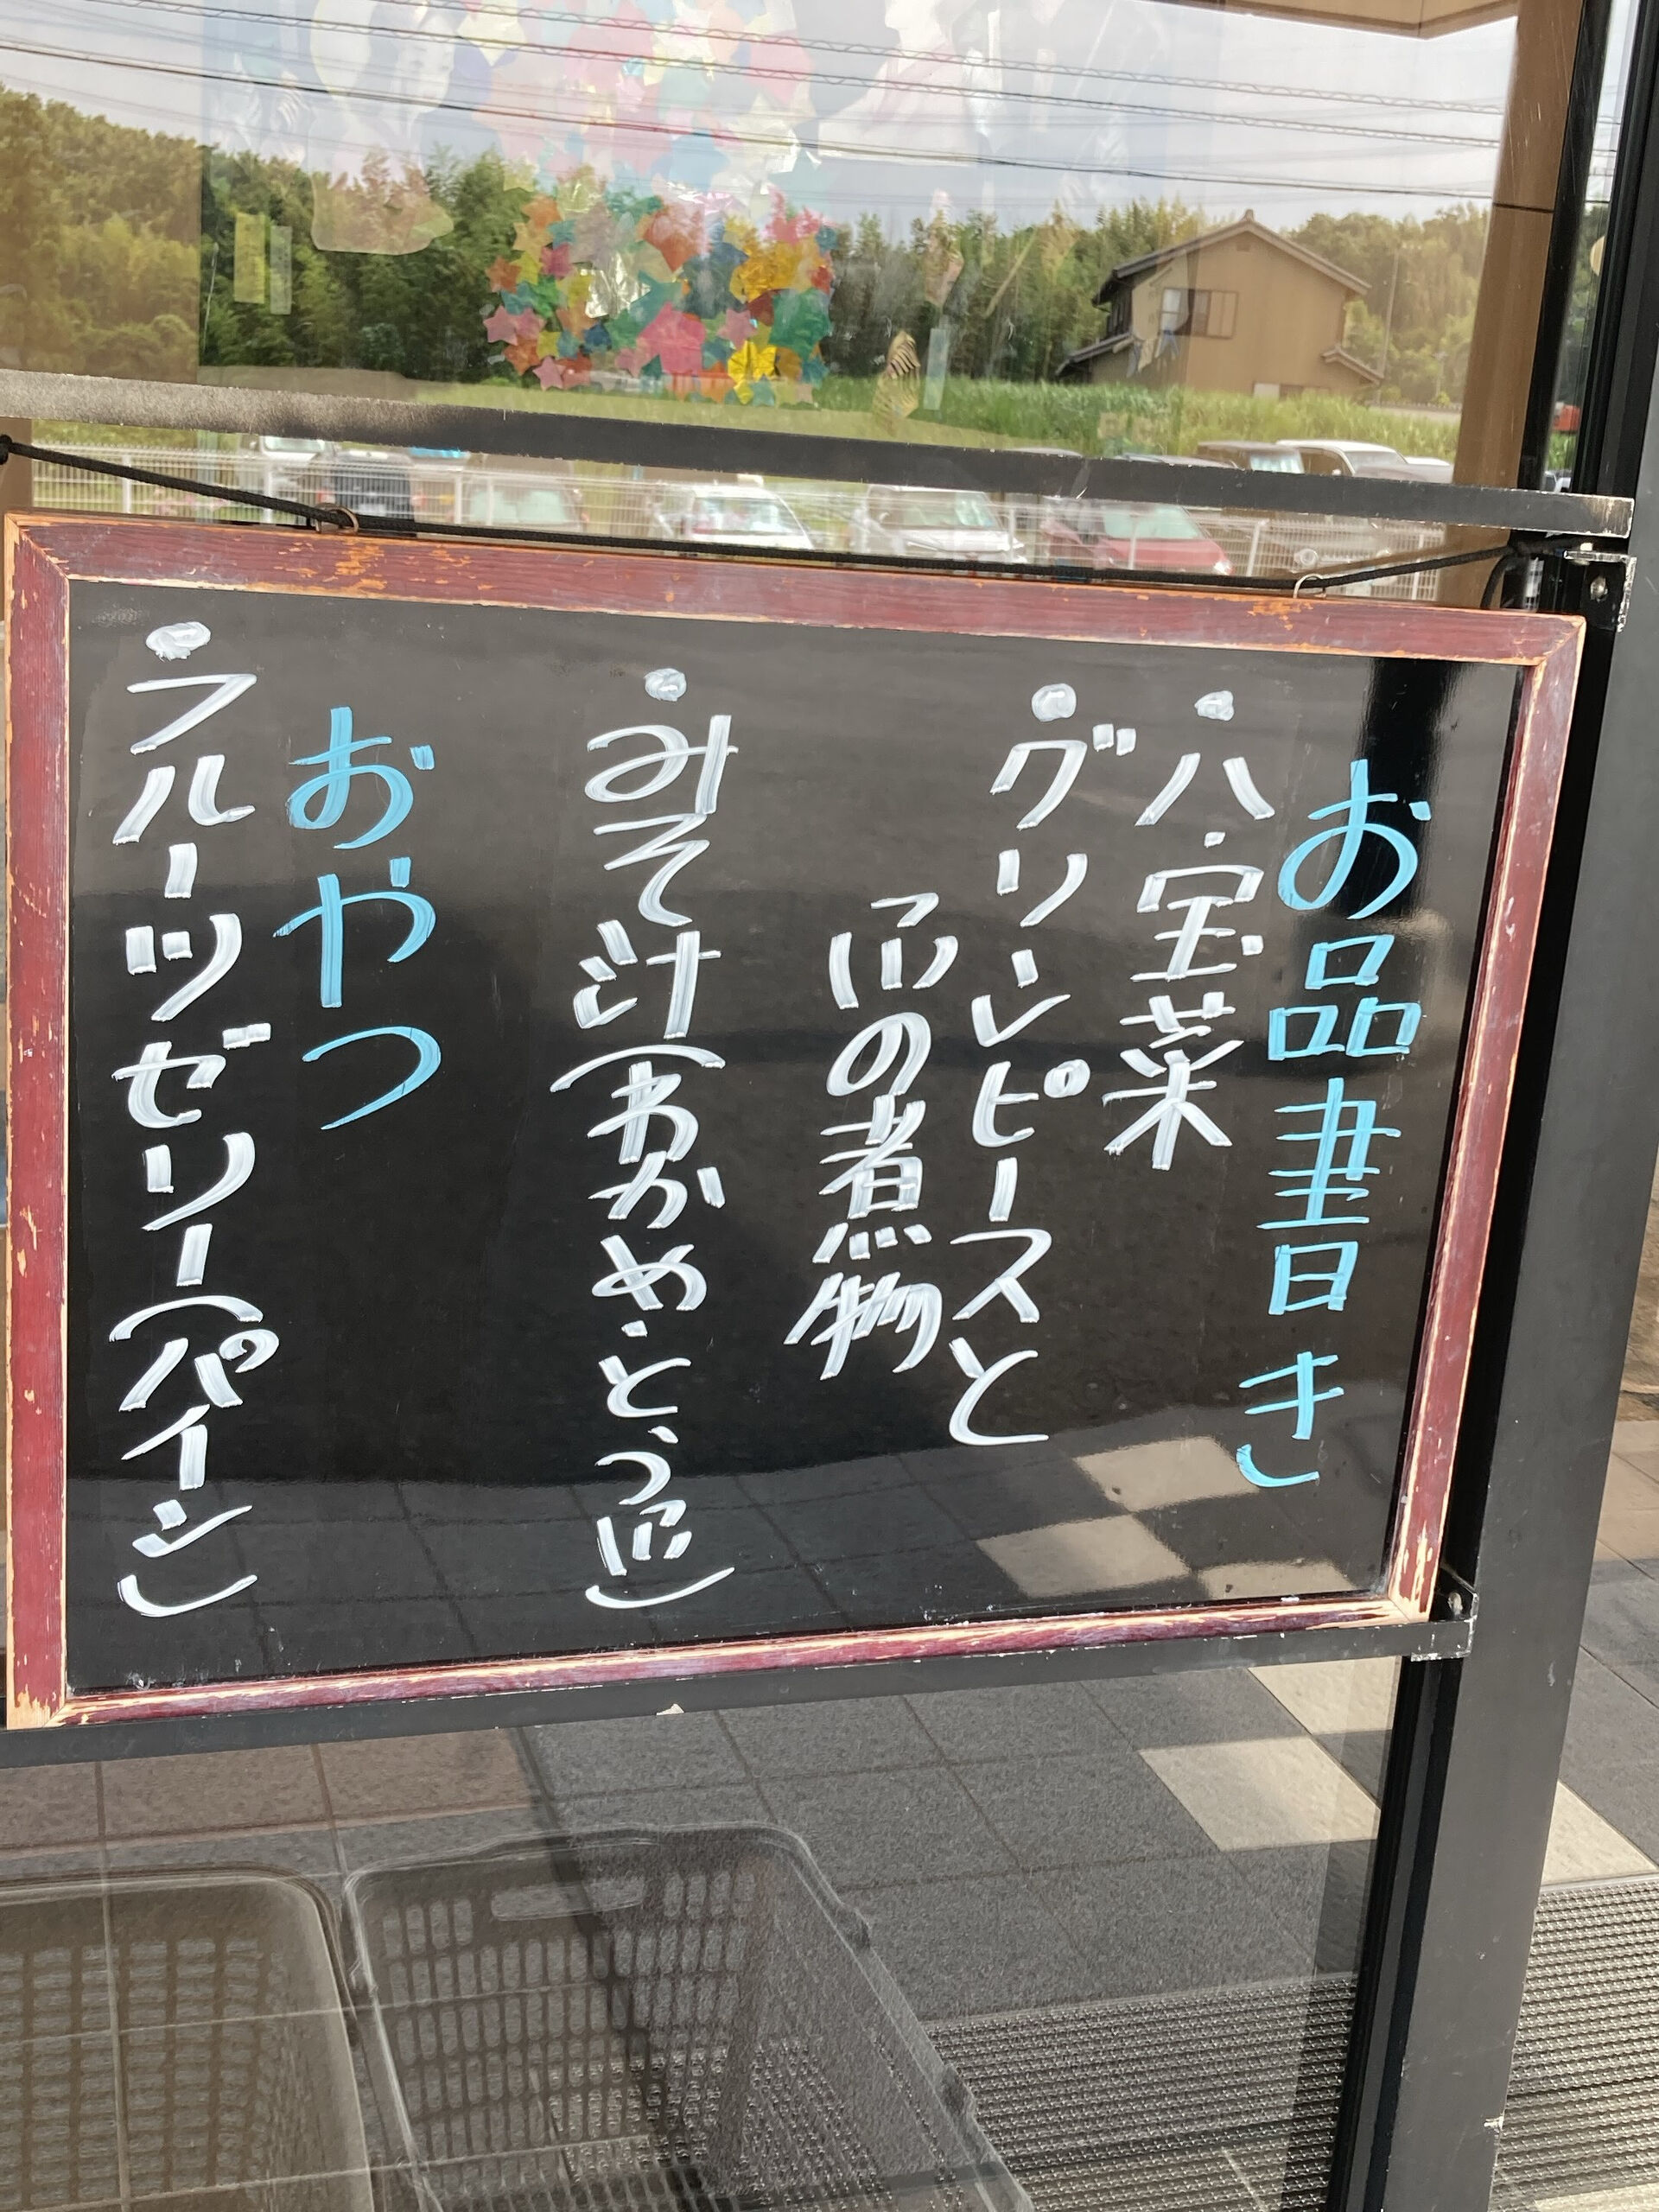 お品書き
・八宝菜
・グリンピースと
ふの煮物
・みそ汁(わかめ・とうふ)
おやつ
・フルーツゼリー(パイン)